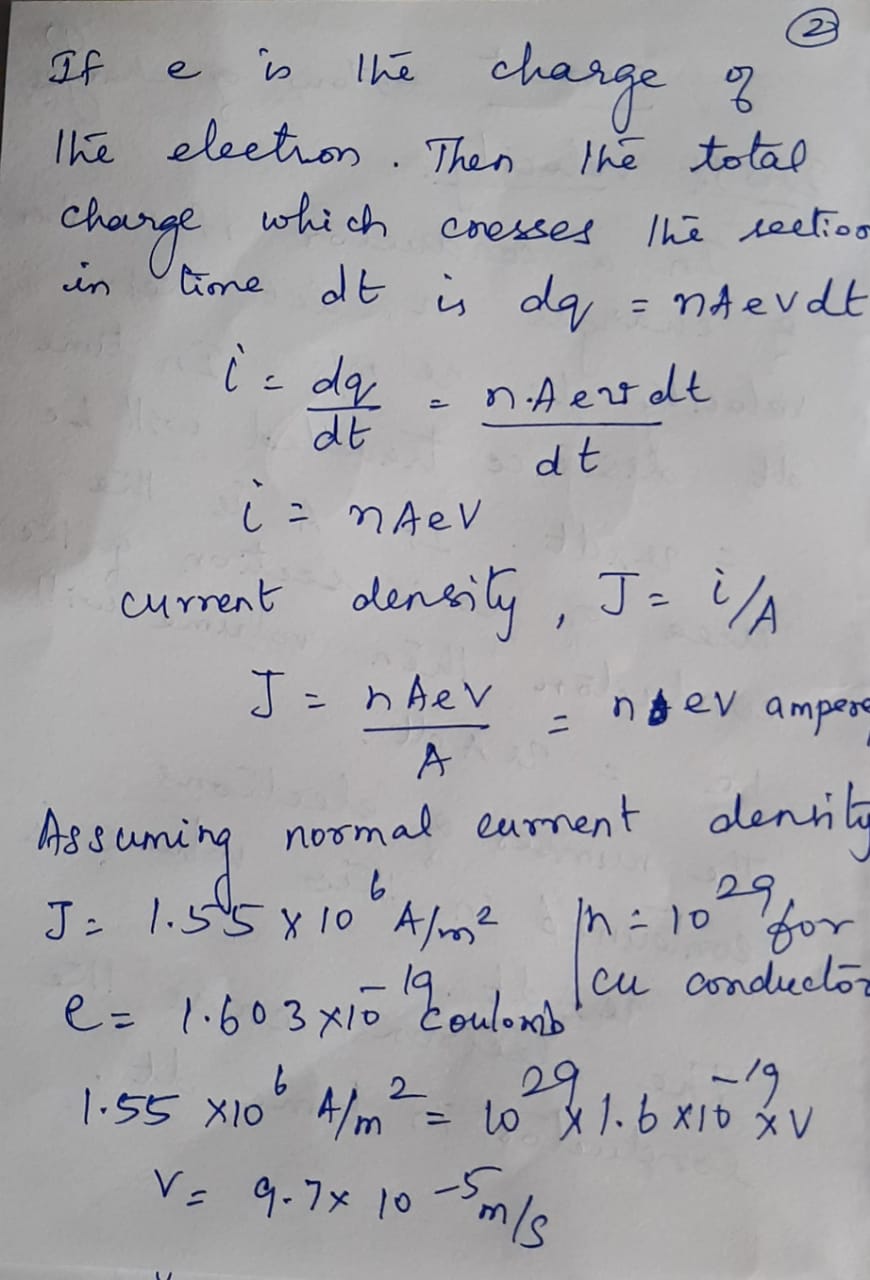 2
If e is the charge of
the electron. Then the total
charge which crosses the section
in time dt is dq = nAevdt
i = dq/dt = n.Aevdt/dt
i = nAeV
current density, J = i/A
J = nAeV/A = nev ampere
Assuming normal current density
J = 1.55 x 10^6 A/m^2 | n = 10^29 for
e = 1.603 x 10^-19 Coulomb | cu conductor
1.55 x 10^6 A/m^2 = 10^29 x 1.6 x 10^-19 x V
V = 9.7 x 10^-5 m/s